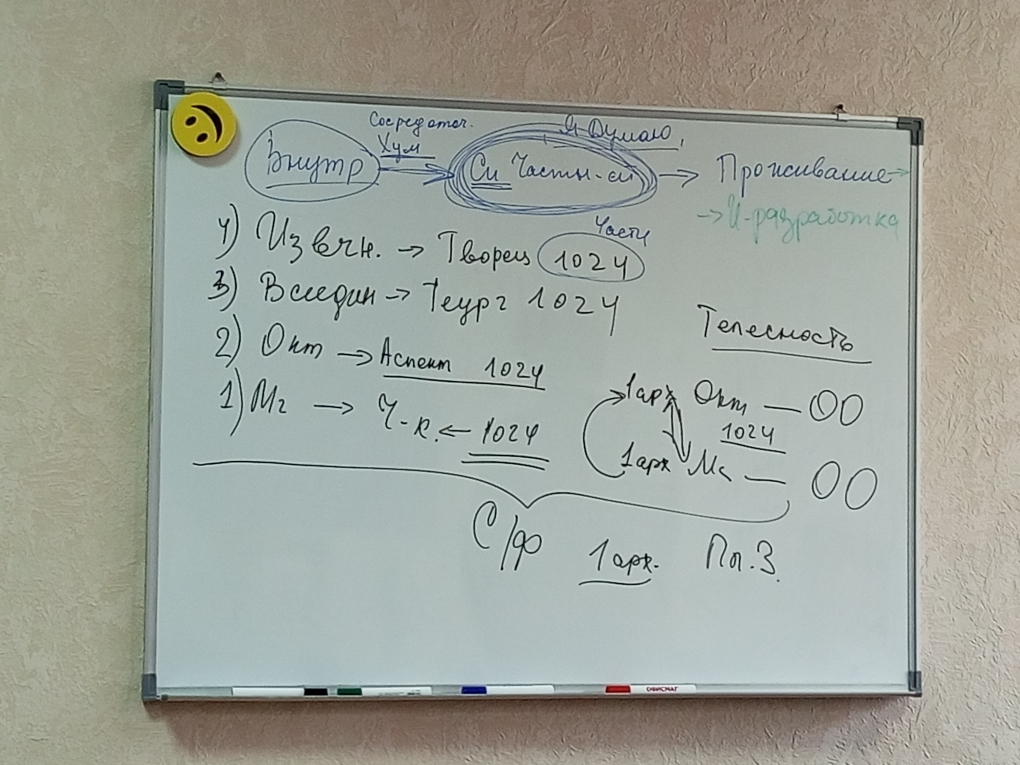 Сосредоточ. Я Думаю,
Внутр Хум Си Части-си → Проживание →
→ И-разработка
Части
4) Извчн. → Творец 1024
3) Всеедин → Теург 1024
2) Окт → Аспект 1024
1) Мг → Ч-к. ← 1024
Телесность
1арх Окт — OO
1024
1арх Мг — OO
С/ф 1арх. Пл. З.
ОФИСМАГ